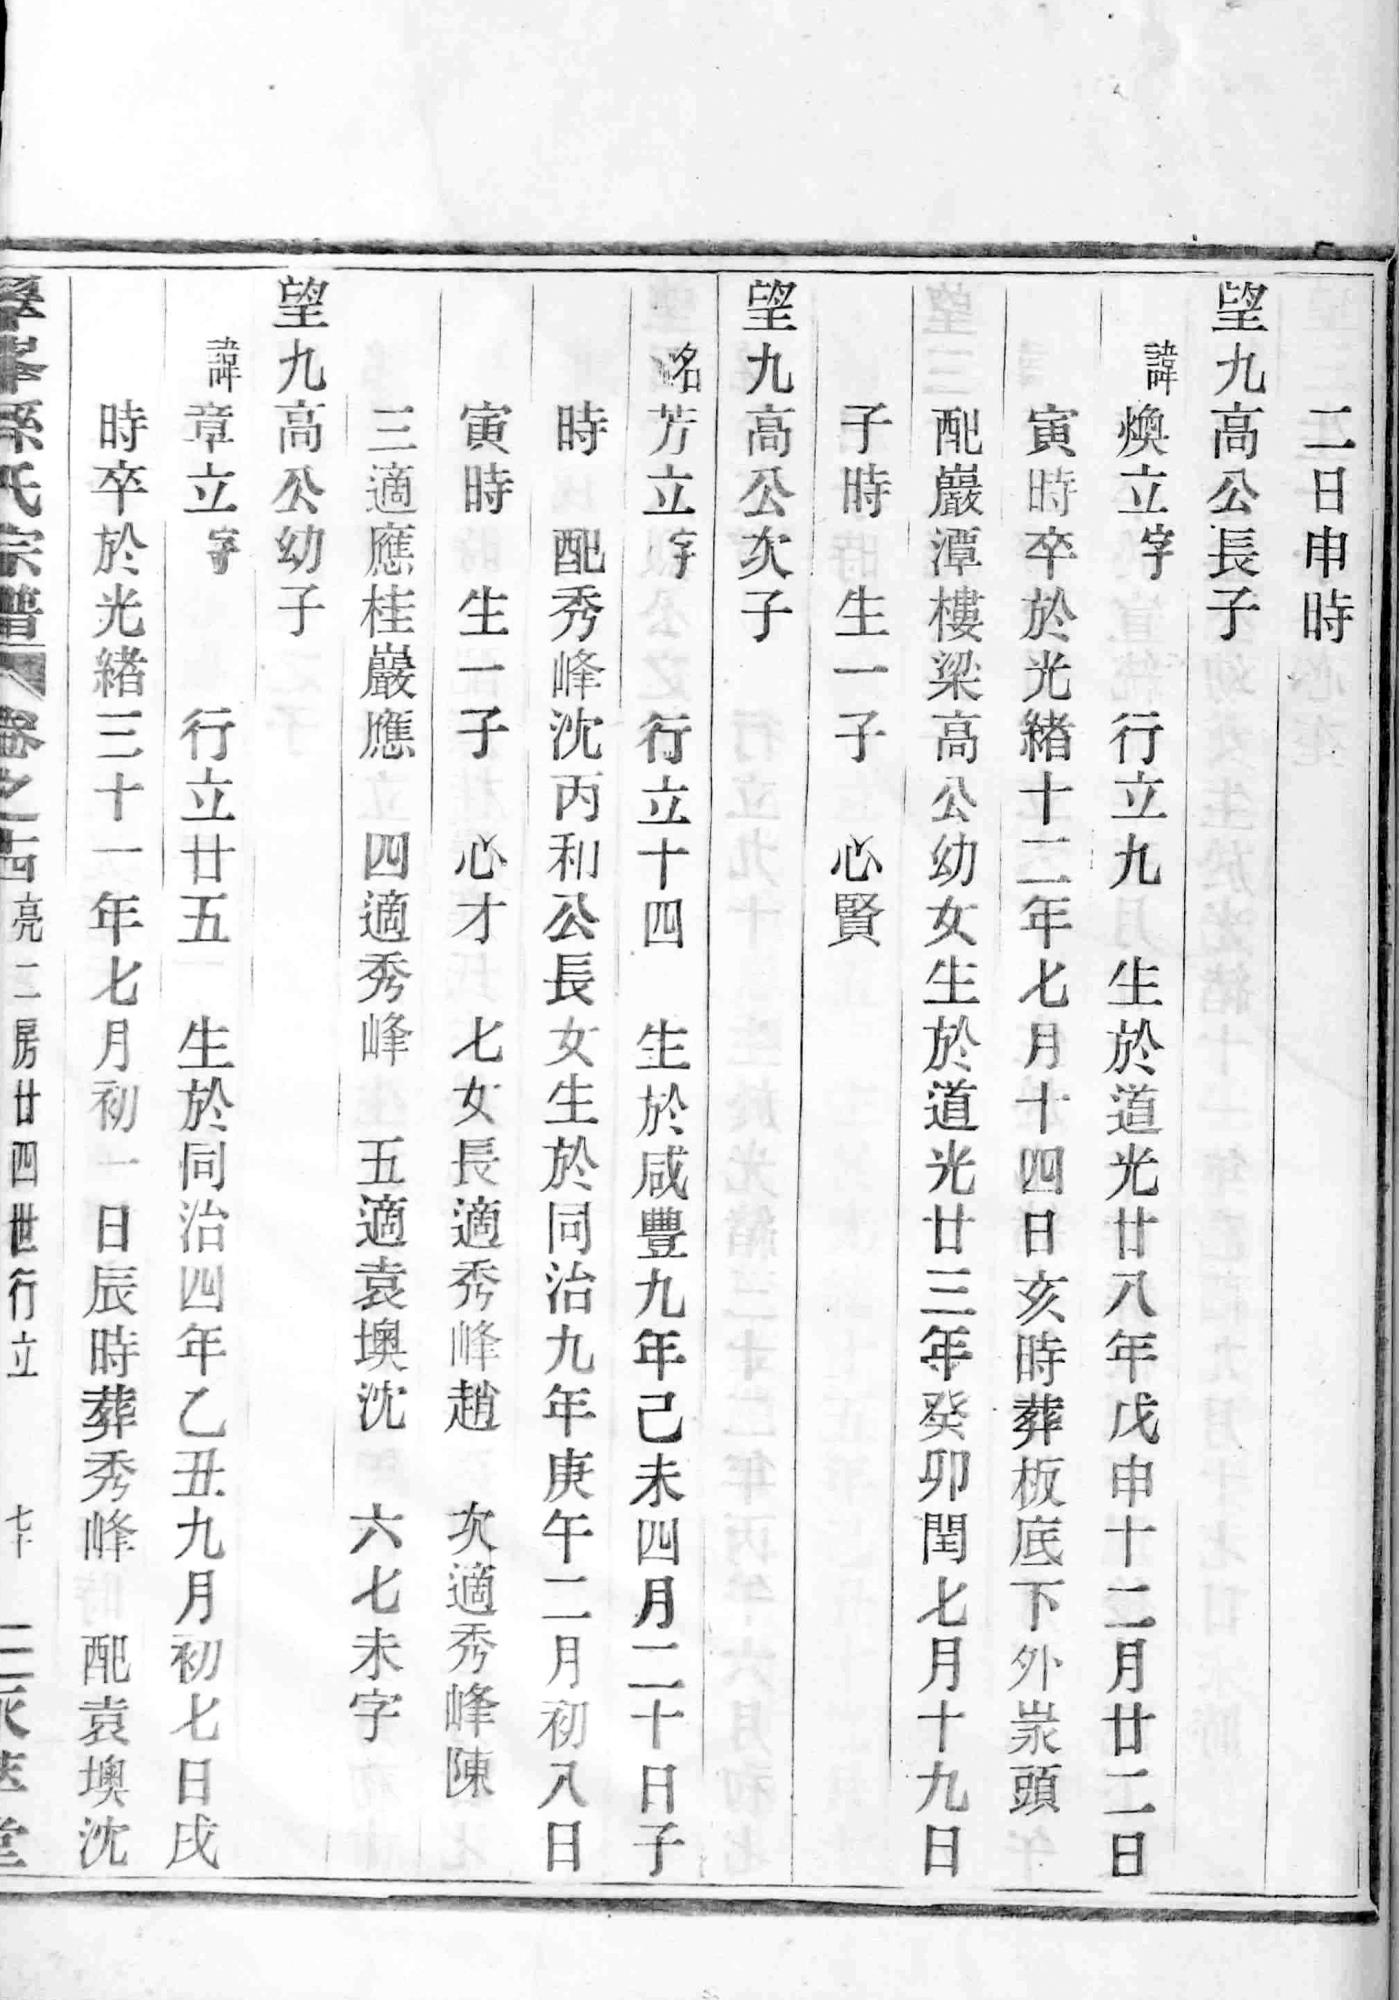 二日申時
望九高公長子
諱煥立字　行立九　生於道光廿八年戊申十二月廿二日
寅時卒於光緒十二年七月十四日亥時葬板底下外泶頭
配巖潭樓梁高公幼女生於道光廿三年癸卯閏七月十九日
子時生一子　心賢
望九高公次子
名芳立字　行立十四　生於咸豐九年己未四月二十日子
時　配秀峰沈丙和公長女生於同治九年庚午二月初八日
寅時　生一子　心才　七女長適秀峰趙　次適秀峰陳
三適應桂巖應　四適秀峰　五適袁墺沈　六七未字
望九高公幼子
諱章立字　行立廿五　生於同治四年乙丑九月初七日戌
時卒於光緒三十一年七月初一日辰時葬秀峰　配袁墺沈
峯孫氏宗譜　卷之十四　亮二房廿四世行立　七十　堂